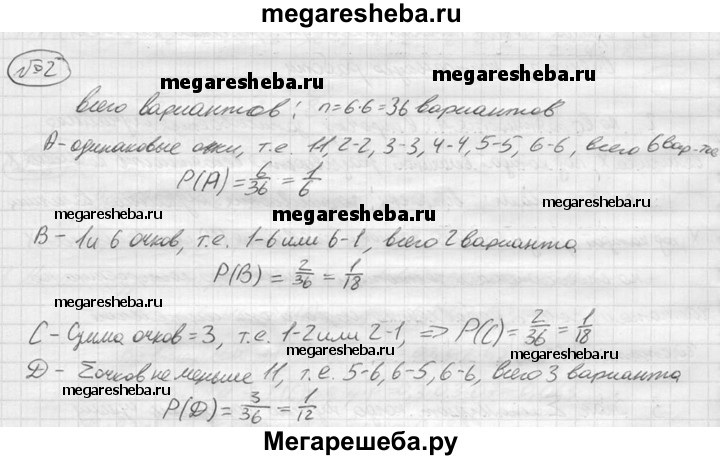 megaresheba.ru
№2
megaresheba.ru megaresheba.ru
всего вариантов: n=6·6=36 вариантов
A - одинаковые очки, т.е. 11, 2-2, 3-3, 4-4, 5-5, 6-6, всего 6 вар-тов
P(A) = 6/36 = 1/6
megaresheba.ru megaresheba.ru megaresheba.ru
B - 1 и 6 очков, т.е. 1-6 или 6-1, всего 2 варианта
P(B) = 2/36 = 1/18
megaresheba.ru
C - Сумма очков = 3, т.е. 1-2 или 2-1, => P(C) = 2/36 = 1/18
megaresheba.ru megaresheba.ru
D - Σ очков не меньше 11, т.е. 5-6, 6-5, 6-6, всего 3 варианта
megaresheba.ru megaresheba.ru
P(D) = 3/36 = 1/12
Мегарешеба.ру